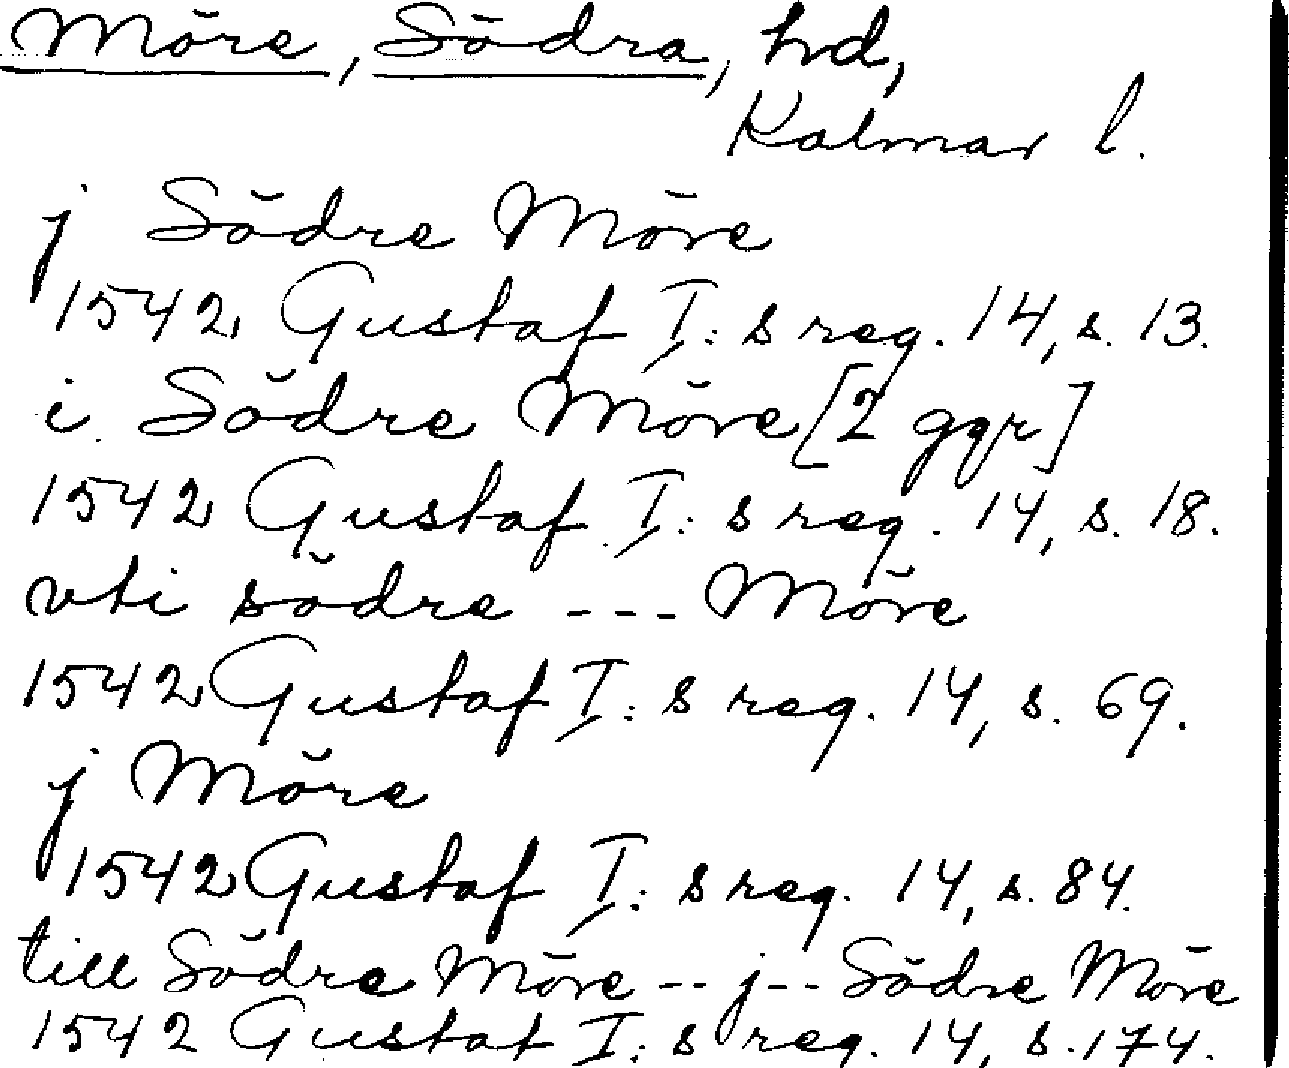 Möre, Södra, hd,
Kalmar l.
j Södre Möre
1542 Gustaf I:s reg. 14, s. 13.
i Södre Möre [2 ggr]
1542 Gustaf I:s reg. 14, s. 18.
vti södre --- Möre
1542 Gustaf I:s reg. 14, s. 69.
j Möre
1542 Gustaf I:s reg. 14, s. 84.
till Södre Möre -- j -- Södre Möre
1542 Gustaf I:s reg. 14, s. 174.